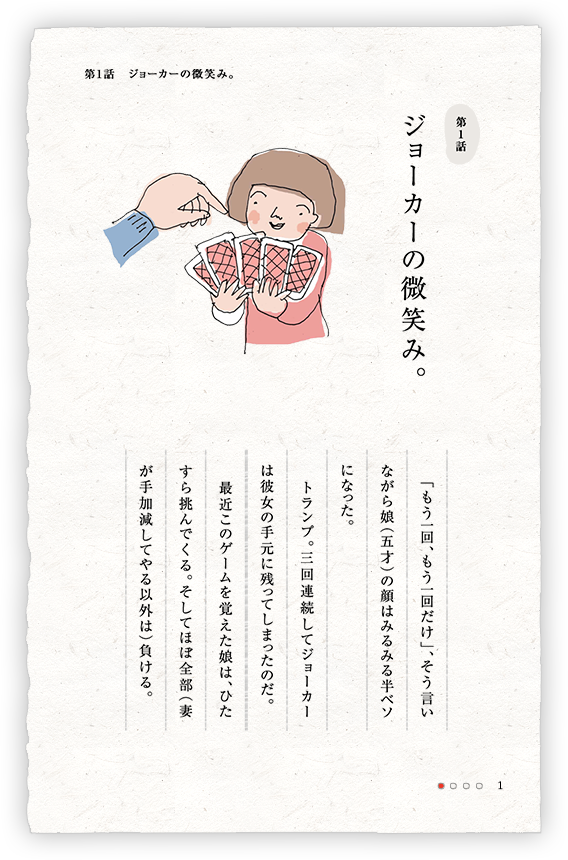 第1話　ジョーカーの微笑み。
第1話
ジョーカーの微笑み。
「もう一回、もう一回だけ」、そう言い
ながら娘（五才）の顔はみるみる半ベソ
になった。
トランプ。三回連続してジョーカー
は彼女の手元に残ってしまったのだ。
最近このゲームを覚えた娘は、ひた
すら挑んでくる。そしてほぼ全部（妻
が手加減してやる以外は）負ける。
1